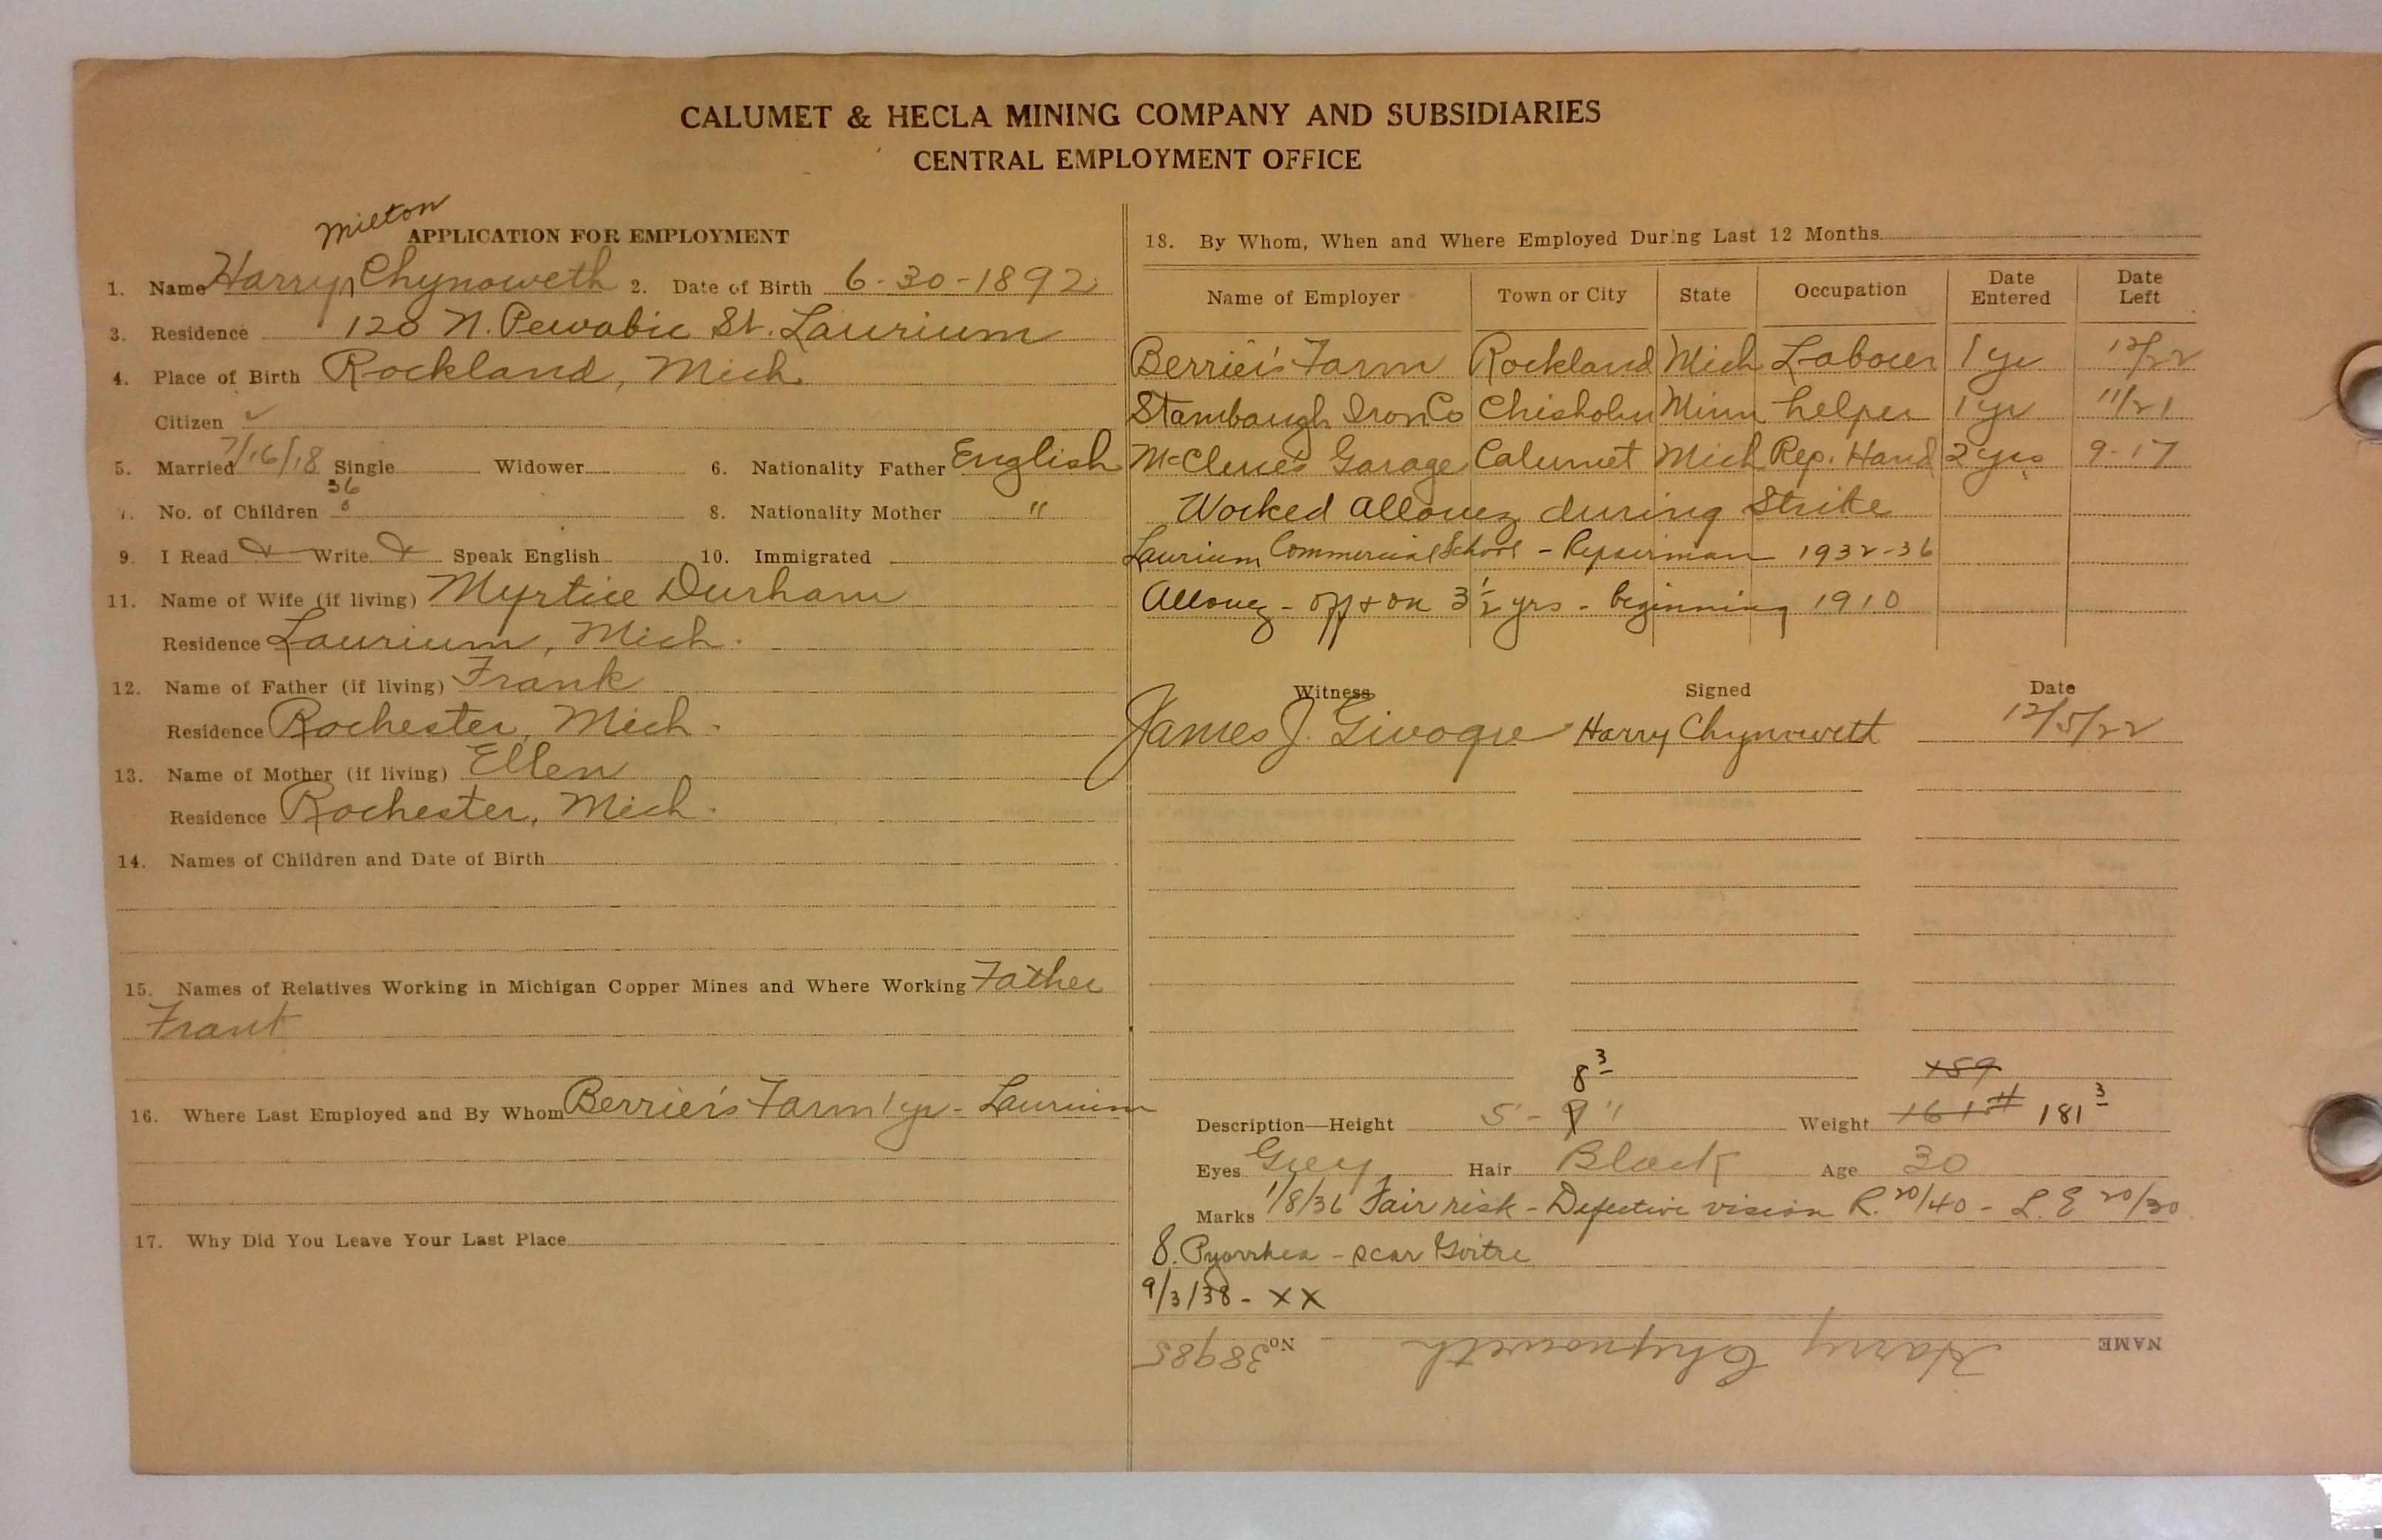 CALUMET & HECLA MINING COMPANY AND SUBSIDIARIES
CENTRAL EMPLOYMENT OFFICE
Milton
APPLICATION FOR EMPLOYMENT
1. Name Harry Chynoweth 2. Date of Birth 6-30-1892
3. Residence 120 N. Pewabic St. Laurium
4. Place of Birth Rockland, Mich.
Citizen ✓
5. Married 7/16/18 Single Widower 6. Nationality Father English
36
7. No. of Children 0 8. Nationality Mother "
9. I Read Write Speak English 10. Immigrated
11. Name of Wife (if living) Myrtice Durham
Residence Laurium, Mich.
12. Name of Father (if living) Frank
Residence Rochester, Mich.
13. Name of Mother (if living) Ellen
Residence Rochester, Mich.
14. Names of Children and Date of Birth
15. Names of Relatives Working in Michigan Copper Mines and Where Working Father
Frank
16. Where Last Employed and By Whom Berrier's Farm 1 yr - Laurium
17. Why Did You Leave Your Last Place
18. By Whom, When and Where Employed During Last 12 Months
Name of Employer Town or City State Occupation Date Entered Date Left
Berrier's Farm Rockland Mich Labour 1 yr 12/22
Stambaugh Iron Co Chisholm Minn helper 1 yr 11/21
McClure's Garage Calumet Mich Rep. Hand 2 yrs 9-17
Worked Allouez during Strike
Laurium Commercial School - Repairman 1932-36
Allouez - off + on 3 1/2 yrs - beginning 1910
Witness Signed Date
James J. Givogre Harry Chynoweth 12/5/22
8 3 159
Description—Height 5' - 9" Weight 161# 181 3
Eyes Grey Hair Black Age 30
Marks 1/8/36 Fair risk - Defective vision R. 20/40 - L. E 20/30
8. Pyorrhea - scar Goitre
9/3/38 - XX
NAME Harry Chynoweth No. 38985